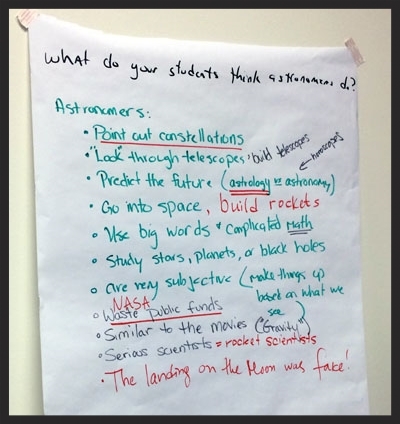 What do your students think astronomers do?
Astronomers:
• Point out constellations
• "Look" through telescopes, build telescopes
• Predict the future (astrology vs astronomy) ← horoscopes
• Go into space, build rockets
• Use big words + complicated Math
• Study stars, planets, or black holes
• are very subjective (make things up
based on what we
see)
NASA
• Waste public funds
• Similar to the movies ("Gravity")
• Serious scientists = rocket scientists
• The landing on the Moon was fake!